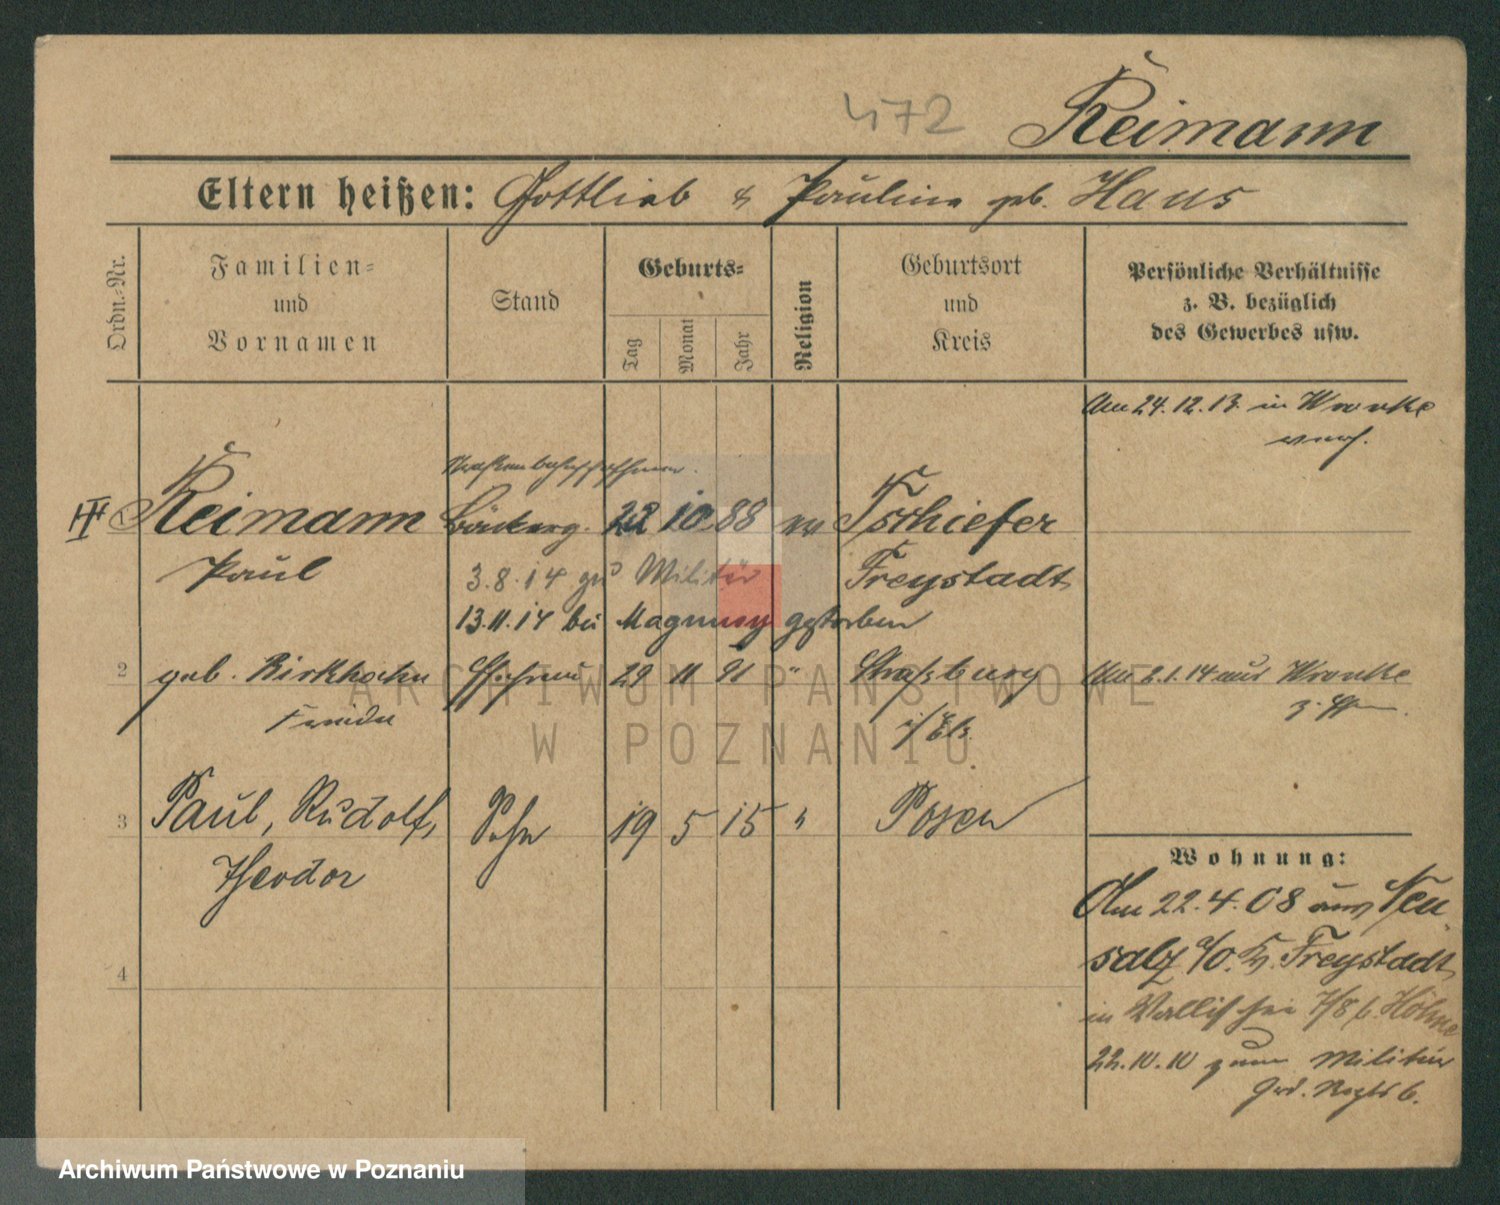 472
Reimann
Eltern heißen: Gottlieb & Pauline geb. Haus
Ordn.-Nr.
Familien-
und
Vornamen
Stand
Geburts-
Tag
Monat
Jahr
Religion
Geburtsort
und
Kreis
Persönliche Verhältnisse
z. B. bezüglich
des Gewerbes usw.
Am 24.12.13. in Wronke
verh.
Straßenbahnschaffner.
III Reimann Bäckerg. 22 10 88 ev Tschiefer
Paul 3.8.14 zu Militär Freystadt
13.11.14 bei gestorben
2 geb. Birkhahn Ehefrau 29 11 91 " Straßburg Am 2.1.14 aus Wronke
Frieda i/Els.
3 Paul, Rudolf, Sohn 19 5 15 " Posen
Theodor
Wohnung:
Am 22.4.08 aus Neu
salz a/O. Kr. Freystadt
in Wallischei 7/8 b. Höhne
4
22.10.10 zum Militär
Grd. Regts 6.
ARCHIWUM PAŃSTWOWE
W POZNANIU
Archiwum Państwowe w Poznaniu